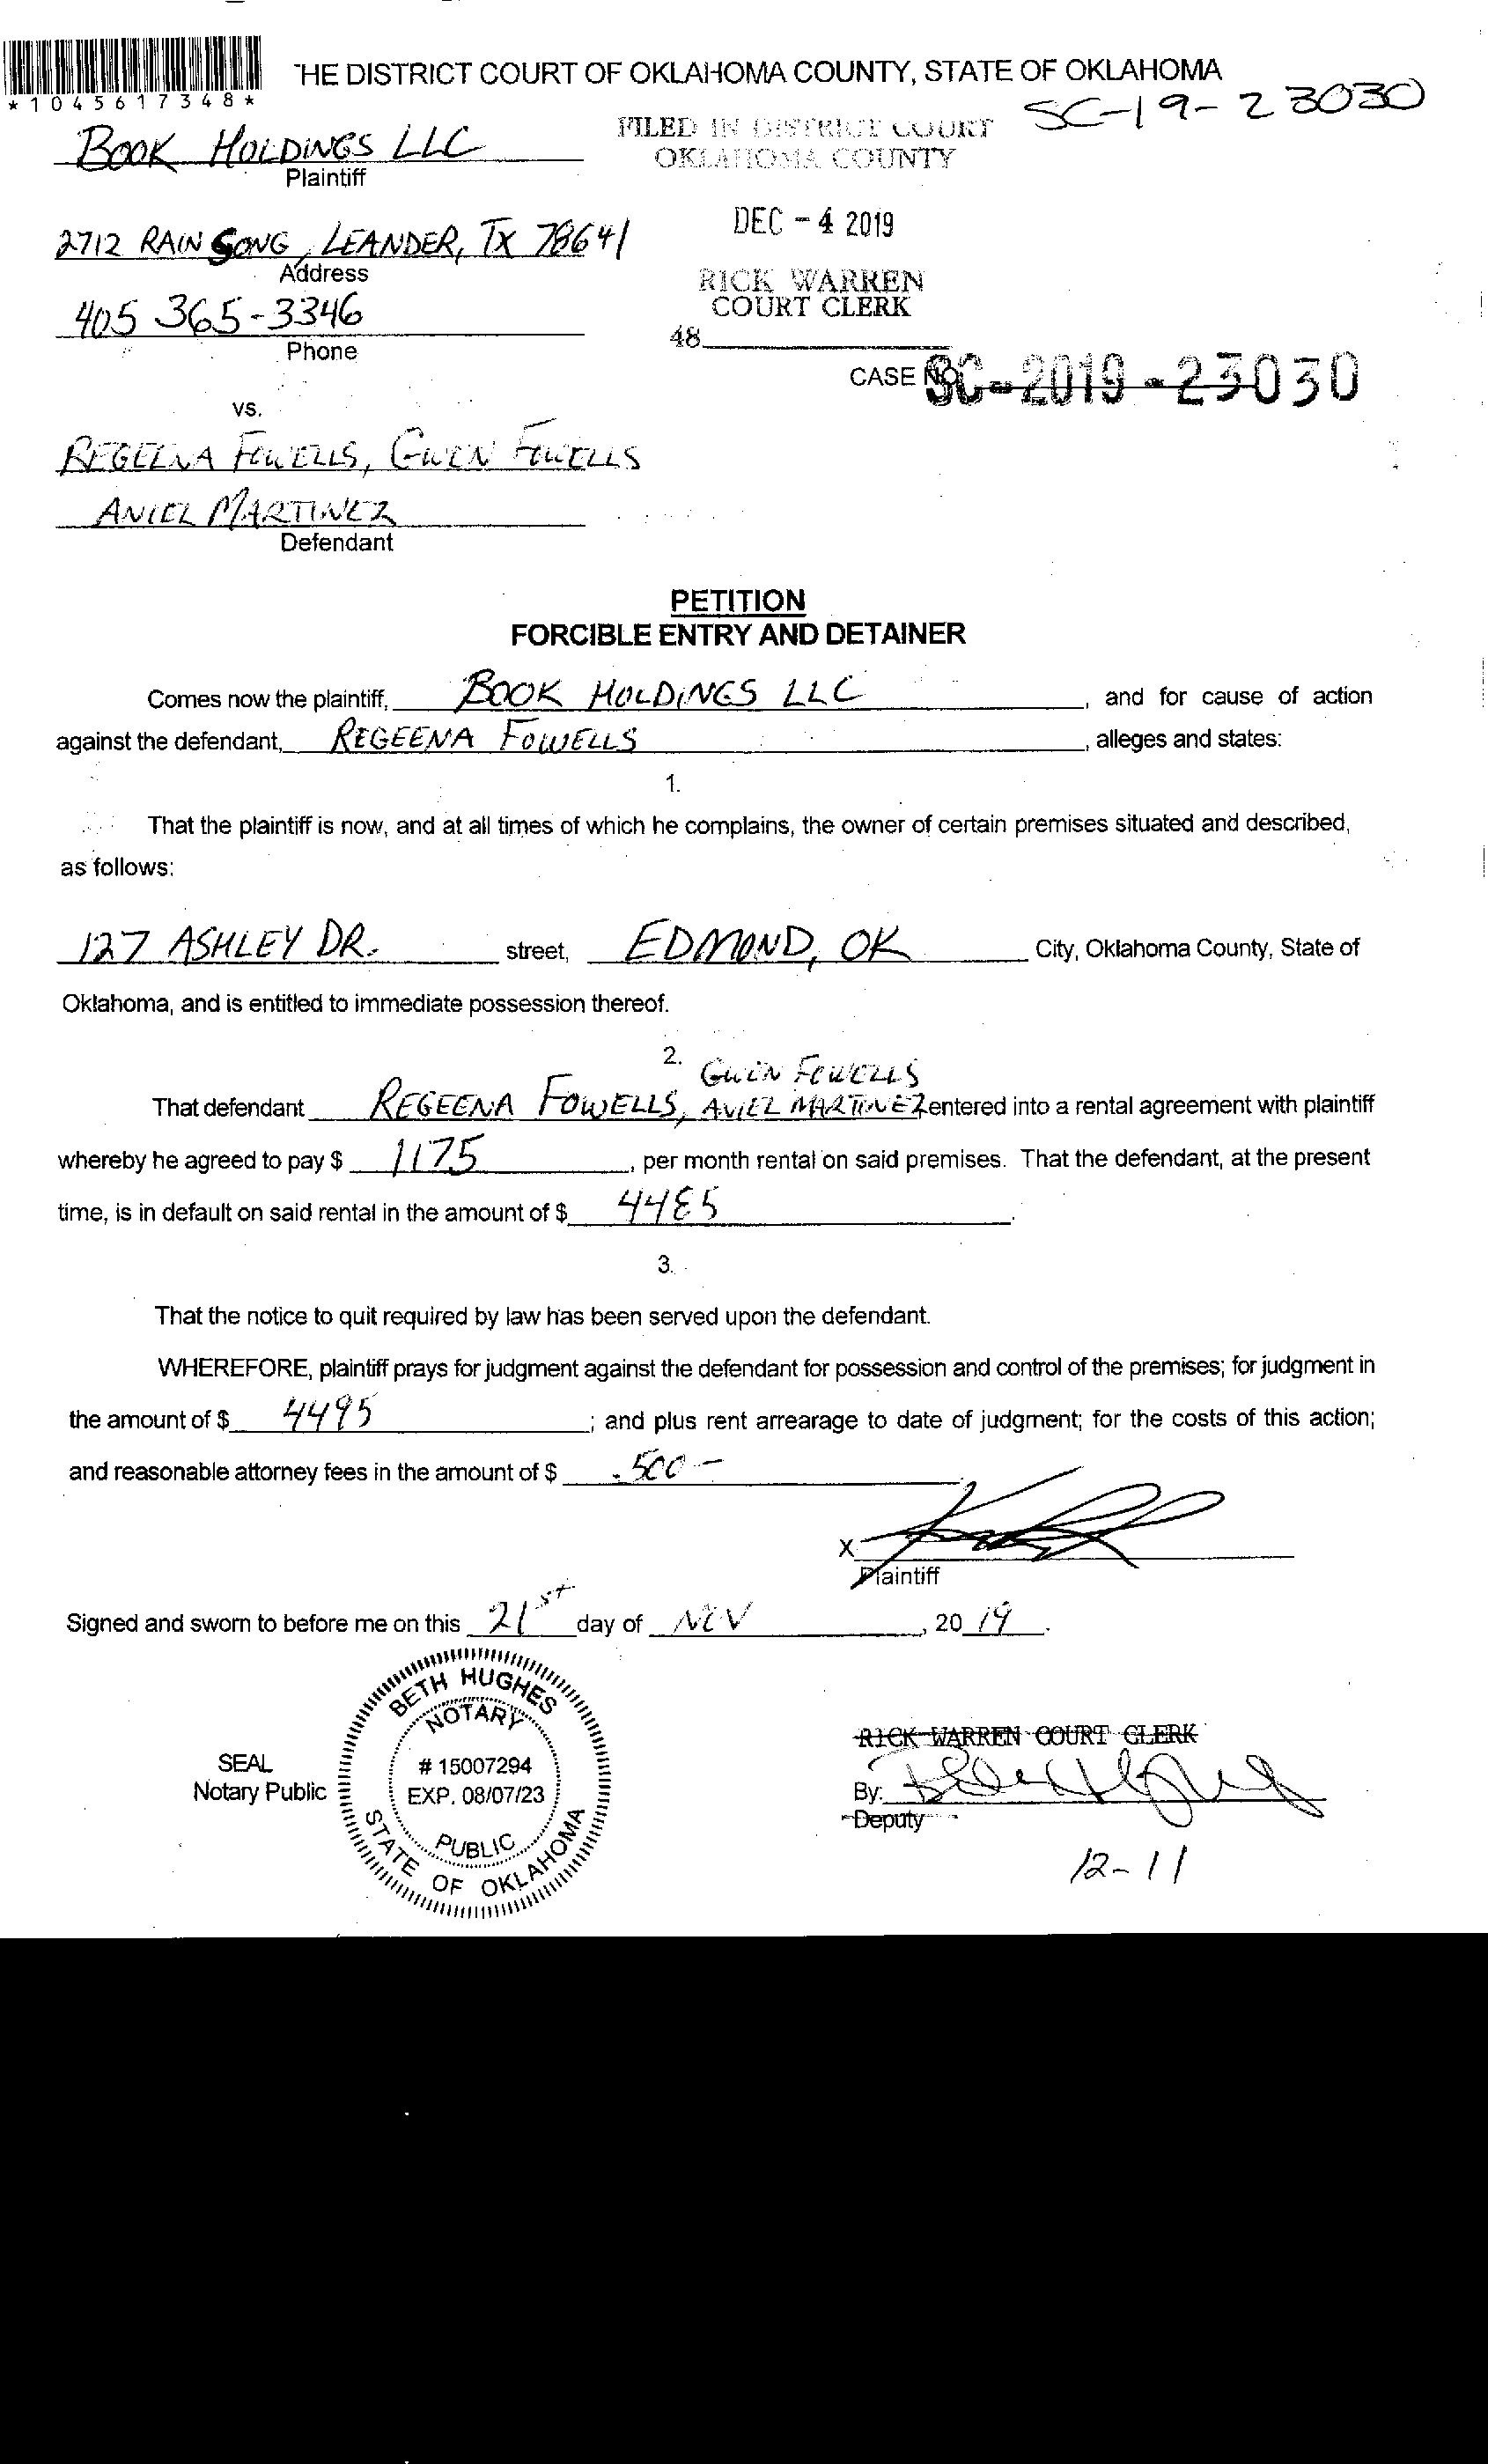 THE DISTRICT COURT OF OKLAHOMA COUNTY, STATE OF OKLAHOMA
*1045617348*
SC-19-23030
BOOK HOLDINGS LLC
Plaintiff
FILED IN DISTRICT COURT
OKLAHOMA COUNTY
2712 RAIN SONG, LEANDER, TX 78641
Address
DEC - 4 2019
405 365-3346
Phone
RICK WARREN
COURT CLERK
48
CASE NO. SC-2019-23030
vs.
REGEENA FOWELLS, GWEN FOWELLS
ANIEL MARTINEZ
Defendant
PETITION
FORCIBLE ENTRY AND DETAINER
Comes now the plaintiff, BOOK HOLDINGS LLC, and for cause of action
against the defendant, REGEENA FOWELLS, alleges and states:
1.
That the plaintiff is now, and at all times of which he complains, the owner of certain premises situated and described,
as follows:
127 ASHLEY DR. street, EDMOND, OK City, Oklahoma County, State of
Oklahoma, and is entitled to immediate possession thereof.
2.
GWEN FOWELLS
That defendant REGEENA FOWELLS, AVIEL MARTINEZ entered into a rental agreement with plaintiff
whereby he agreed to pay $ 1175, per month rental on said premises. That the defendant, at the present
time, is in default on said rental in the amount of $ 4485.
3.
That the notice to quit required by law has been served upon the defendant.
WHEREFORE, plaintiff prays for judgment against the defendant for possession and control of the premises; for judgment in
the amount of $ 4495; and plus rent arrearage to date of judgment; for the costs of this action;
and reasonable attorney fees in the amount of $ 500-
X
Plaintiff
Signed and sworn to before me on this 21st day of NOV, 2019.
BETH HUGHES
NOTARY
# 15007294
EXP. 08/07/23
PUBLIC
STATE OF OKLAHOMA
SEAL
Notary Public
RICK WARREN COURT CLERK
By:
Deputy
12-11